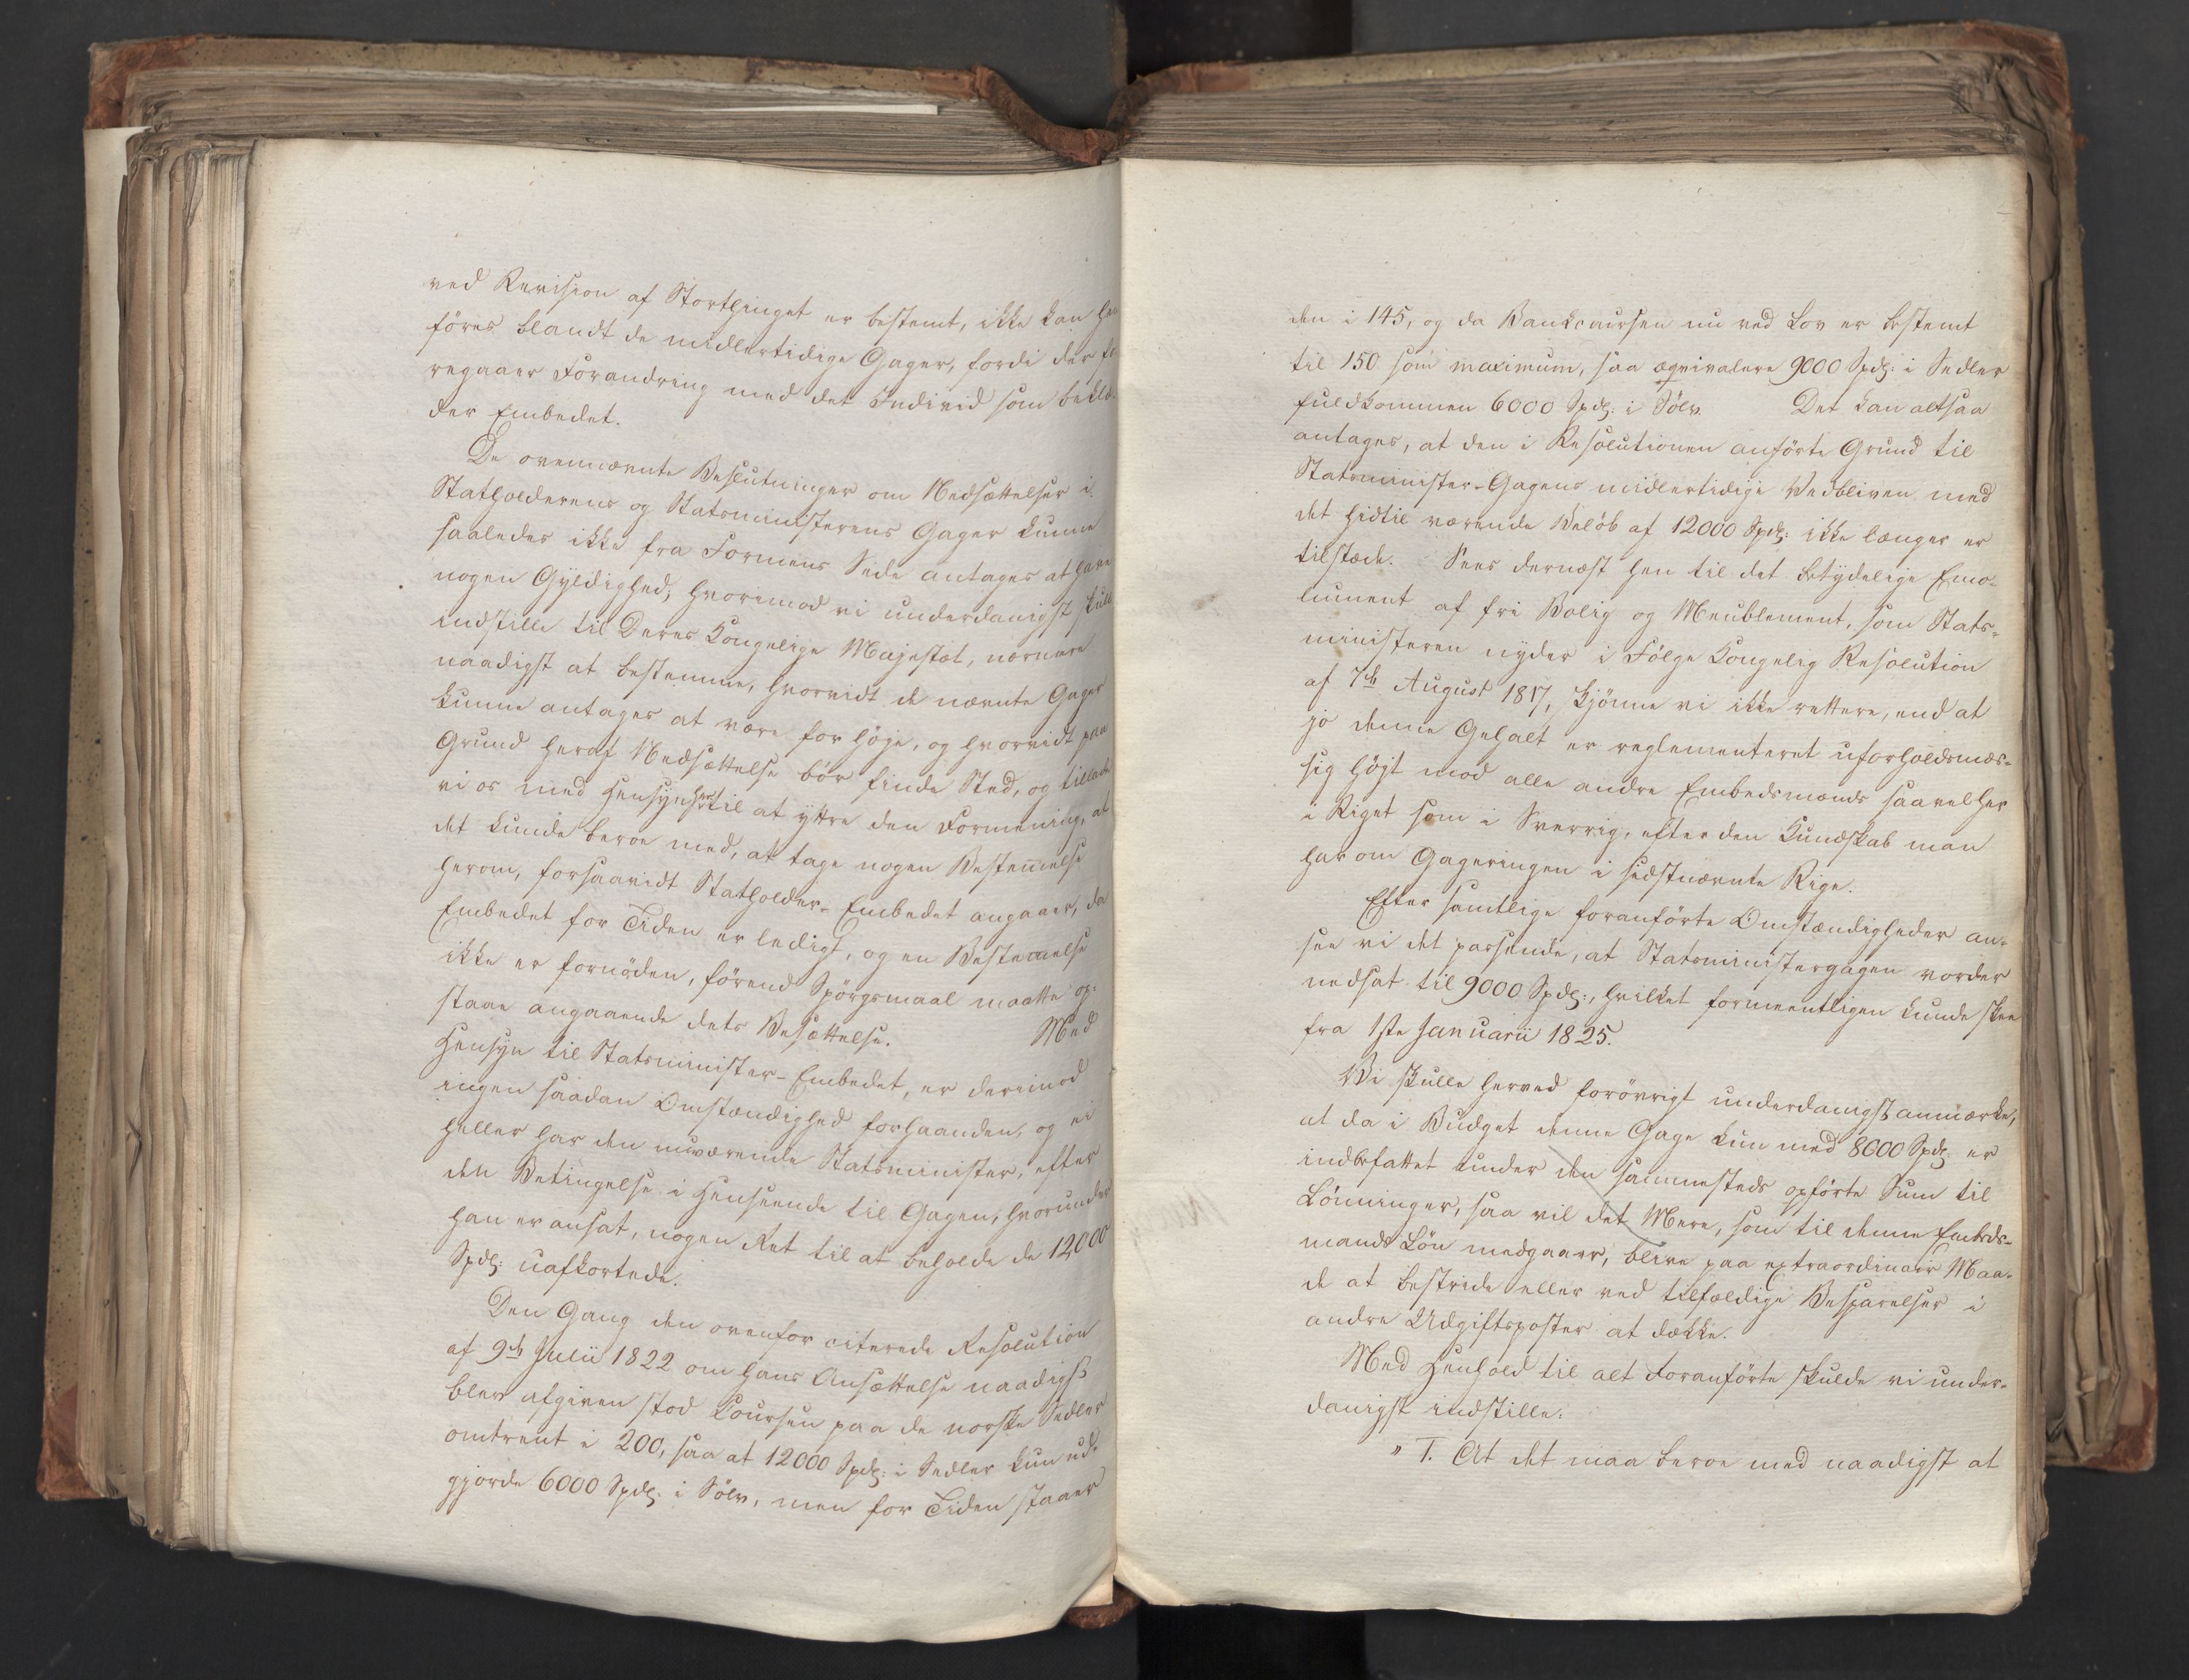 ved Revision af Storthinget er bestemt, ikke kan hen
föres blandt de midlertidige Gager, fordi der fo
regaaer Forandring med det Individ som beklæ
der Embedet.
De ovennævnte Beslutninger om Nedsættelser i
Statholderens og Statsministerens Gager kunne
saaledes ikke fra Formens Side antages at have
nogen Gyldighed; hvorimod vi underdanigst skulle
indstille til Deres Kongelige Majestæt, nærmere
naadigst at bestemme, hvorvidt de nævnte Gager
kunne antages at være for höje, og hvorvidt paa
Grund heraf Nedsættelse bör finde Sted, og tillade
vi os med Hensyn hertil at yttre den Formening, at
det kunde beroe med, at tage nogen Bestemmelse
herom, forsaavidt Statholder-Embedet angaaer, da
Embedet for Tiden er ledigt, og en Bestemmelse
ikke er fornöden, förend Spörgsmaal maatte op-
staae angaaende dets Besættelse. Med
Hensyn til Statsminister-Embedet, er derimod
ingen saadan Omstændighed forhaanden, og ei
heller har den nuværende Statsminister, efter
den Betingelse i Henseende til Gagen, hvorunder
han er ansat, nogen Ret til at beholde de 12000
Spdl: uafkortede.
Den Gang den ovenfor citerede Resolution
af 9de Julii 1822 om hans Ansættelse naadigst
blev afgiven stod Coursen paa de norske Sedler
omtrent i 200, saa at 12000 Spdl: i Sedler kun ud-
gjorde 6000 Spdl: i Sölv, men for Tiden staaer
den i 145, og da Bankcoursen nu ved Lov er bestemt
til 150 som maximum, saa æqvivalere 9000 Spdl: i Sedler
fuldkommen 6000 Spdl: i Sölv. Det kan altsaa
antages, at den i Resolutionen anförte Grund til
Statsminister-Gagens midlertidige Vedbliven med
det hidtil værende Belöb af 12000 Spdl: ikke længer er
tilstæde. Sees dernæst hen til det betydelige Emo-
lument af fri Bolig og Meublement, som Stats-
ministeren nyder i Fölge Kongelig Resolution
af 7de August 1817, skjönne vi ikke rettere, end at
jo denne Gehalt er reglementeret uforholdsmæs-
sig höjt mod alle andre Embedsmænds saavel her
i Riget som i Sverrig, efter den Kundskab man
har om Gageringen i sidstnævnte Rige.
Efter samtlige foranförte Omstændigheder an-
see vi det passende, at Statsministergagen vorder
nedsat til 9000 Spdl:, hvilket formeentligen kunde skee
fra 1ste Januarii 1825.
Vi skulle herved forövrigt underdanigst anmærke,
at da i Budget denne Gage kun med 8000 Spdl: er
indbefattet under den sammesteds opförte Sum til
Lönninger, saa vil det Mere, som til denne Embeds-
mands Lön medgaaer, blive paa extraordinair Maa-
de at bestride eller ved tilfældige Besparelser i
andre Udgiftsposter at dække.
Med Henhold til alt Foranförte skulde vi under-
danigst indstille:
" I. At det maa beroe med naadigst at